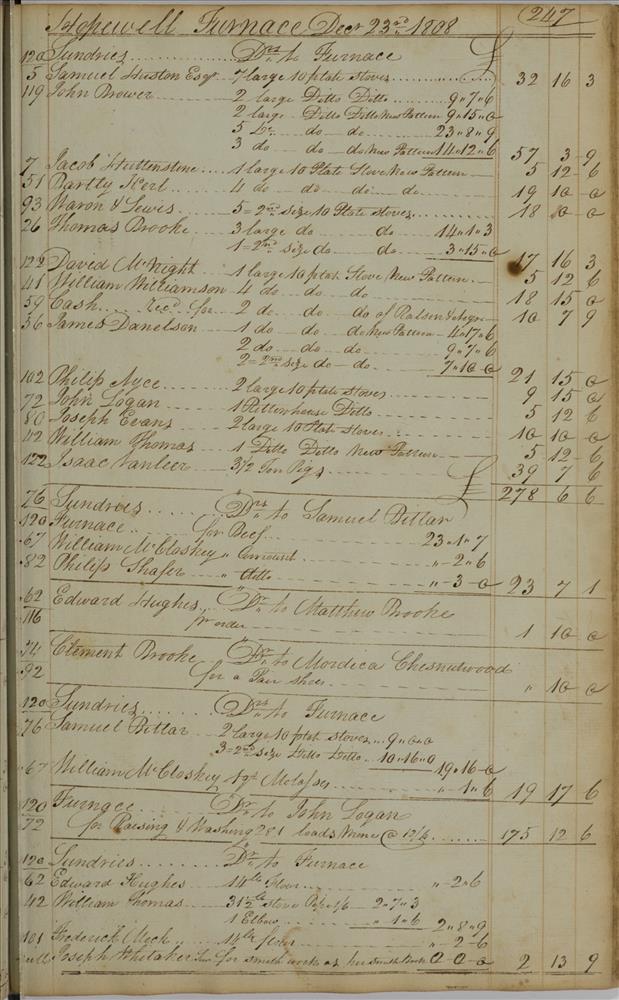 247
Hopewell Furnace Decr 23rd 1808
120 Sundries Drs to Furnace £
5 Samuel Huston Esqr 7 large 10 plate stoves 32 16 3
119 John Brower 2 large Ditto Ditto 9 " 7 " 6
2 large Ditto Ditto New Pattern 9 " 15 " 0
5 Do do do 23 " 8 " 9
3 do do do New Pattern 14 " 12 " 6 57 3 9
7 Jacob 1 large 10 Plate Stove New Pattern 5 12 6
51 Bartly Kerl 4 do do do do 19 10 0
93 Aaron & Lewis 5 = 2nd size 10 Plate stoves 18 0 0
26 Thomas Brooke 3 large do do 14 " 1 " 3
1 = 2nd size do do 3 " 15 " 0 17 16 3
122 David McNight 1 large 10 plate Stove New Pattern 5 12 6
41 William Williamson 4 do do do 18 15 0
59 Cash recd for 2 do do do of 10 7 9
56 James Danelson 1 do do do New Pattern 4 " 17 " 6
2 do do do 9 " 7 " 6
2 = 2nd size do do 7 " 10 " 0 21 15 0
102 Philip Nyce 2 large 10 plate stoves 9 15 0
72 John Logan 1 Rittenhouse Ditto 5 12 6
80 Joseph Evans 2 large 10 Plate Stoves 10 10 0
42 William Thomas 1 Ditto Ditto New Pattern 5 12 6
122 Isaac Vanleer 3 1/2 Ton Pigs 39 7 6
£ 278 6 6
76 Sundries Drs to Samuel Pittar
120 Furnace for Beef 23 " 1 " 7
67 William McCloskey " Amount " 2 " 6
82 Philip Shafer " ditto " 3 " 0 23 7 1
62 Edward Hughes Dr to Matthew Brooke
116 pr order 1 10 0
74 Clement Brooke Dr to Mordica Chesnutwood
92 for a Pair Shoes " 10 0
120 Sundries Drs to Furnace
76 Samuel Pittar 2 large 10 plate stoves 9 " 0 " 0
3 = 2nd size Ditto Ditto 10 " 16 " 0 19 " 16 " 0
67 William McCloskey 1 qt Molasses " 1 " 6 19 17 6
120 Furnace Dr to John Logan
72 for Raising & Washing 281 loads mine @ 12/6 175 12 6
120 Sundries Drs to Furnace
62 Edward Hughes 14 lb Flour " 2 " 6
42 William Thomas 31 1/2 lb stove Pipe 1/6 2 " 7 " 3
1 Elbow " 1 " 6 2 " 8 " 9
101 Frederick Meck 14 lb flour " 2 " 6
Joseph Whitaker for smith work at his Smith Book 0 0 0 2 13 9